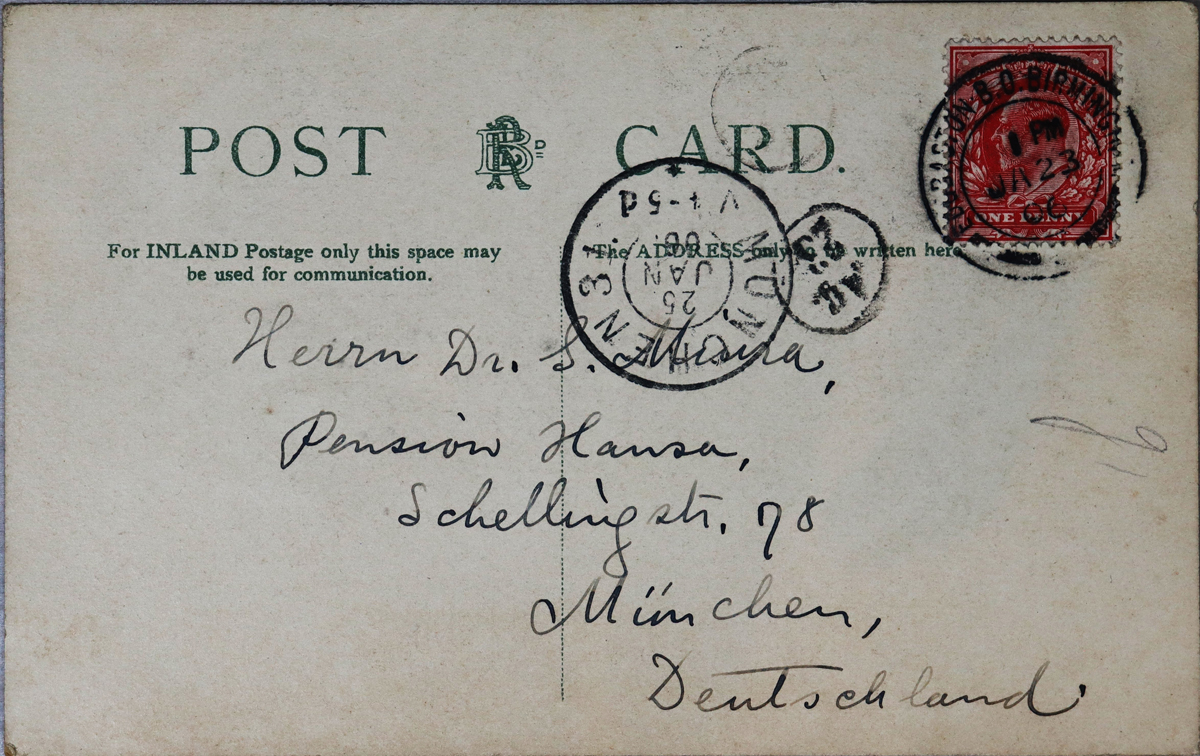 POST CARD.
For INLAND Postage only this space may
be used for communication.
The ADDRESS only written here
EDGBASTON B.O. BIRMINGHAM
1 PM
JA 23
06
ONE PENNY
MÜNCHEN 31.
25
JAN
06
V 4-5
23
Herrn Dr. S.
Pension Hansa,
Schellingstr. 78
München,
Deutschland.